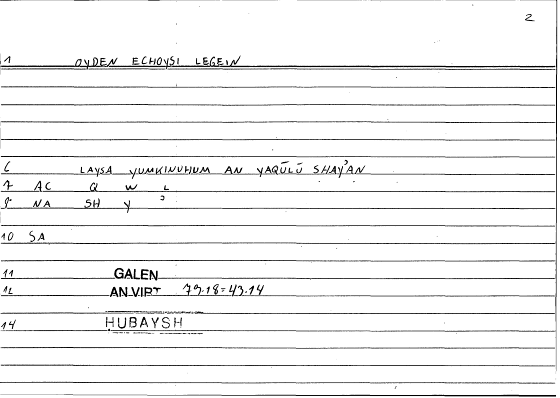 2
1 OYDEN ECHOYSI LEGEIN
6 LAYSA YUMKINUHUM AN YAQŪLŪ SHAYʾAN
7 AC Q W L
8 NA SH Y ʾ
10 SA
11 GALEN
12 AN.VIRT 79.18=43.14
14 ḤUBAYSH